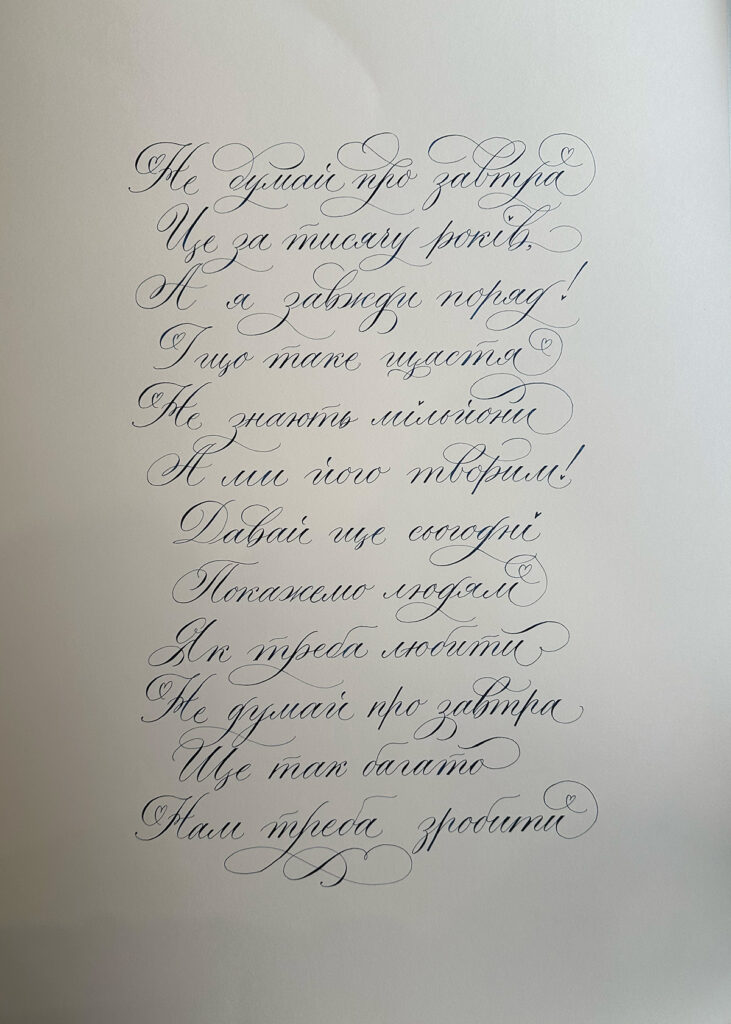 Не думай про завтра
Це за тисячу років,
А я завжди поряд!
І що таке щастя
Не знають мільйони
А ми його творим!
Давай ще сьогодні
Покажемо людям
Як треба любити
Не думай про завтра
Ще так багато
Нам треба зробити